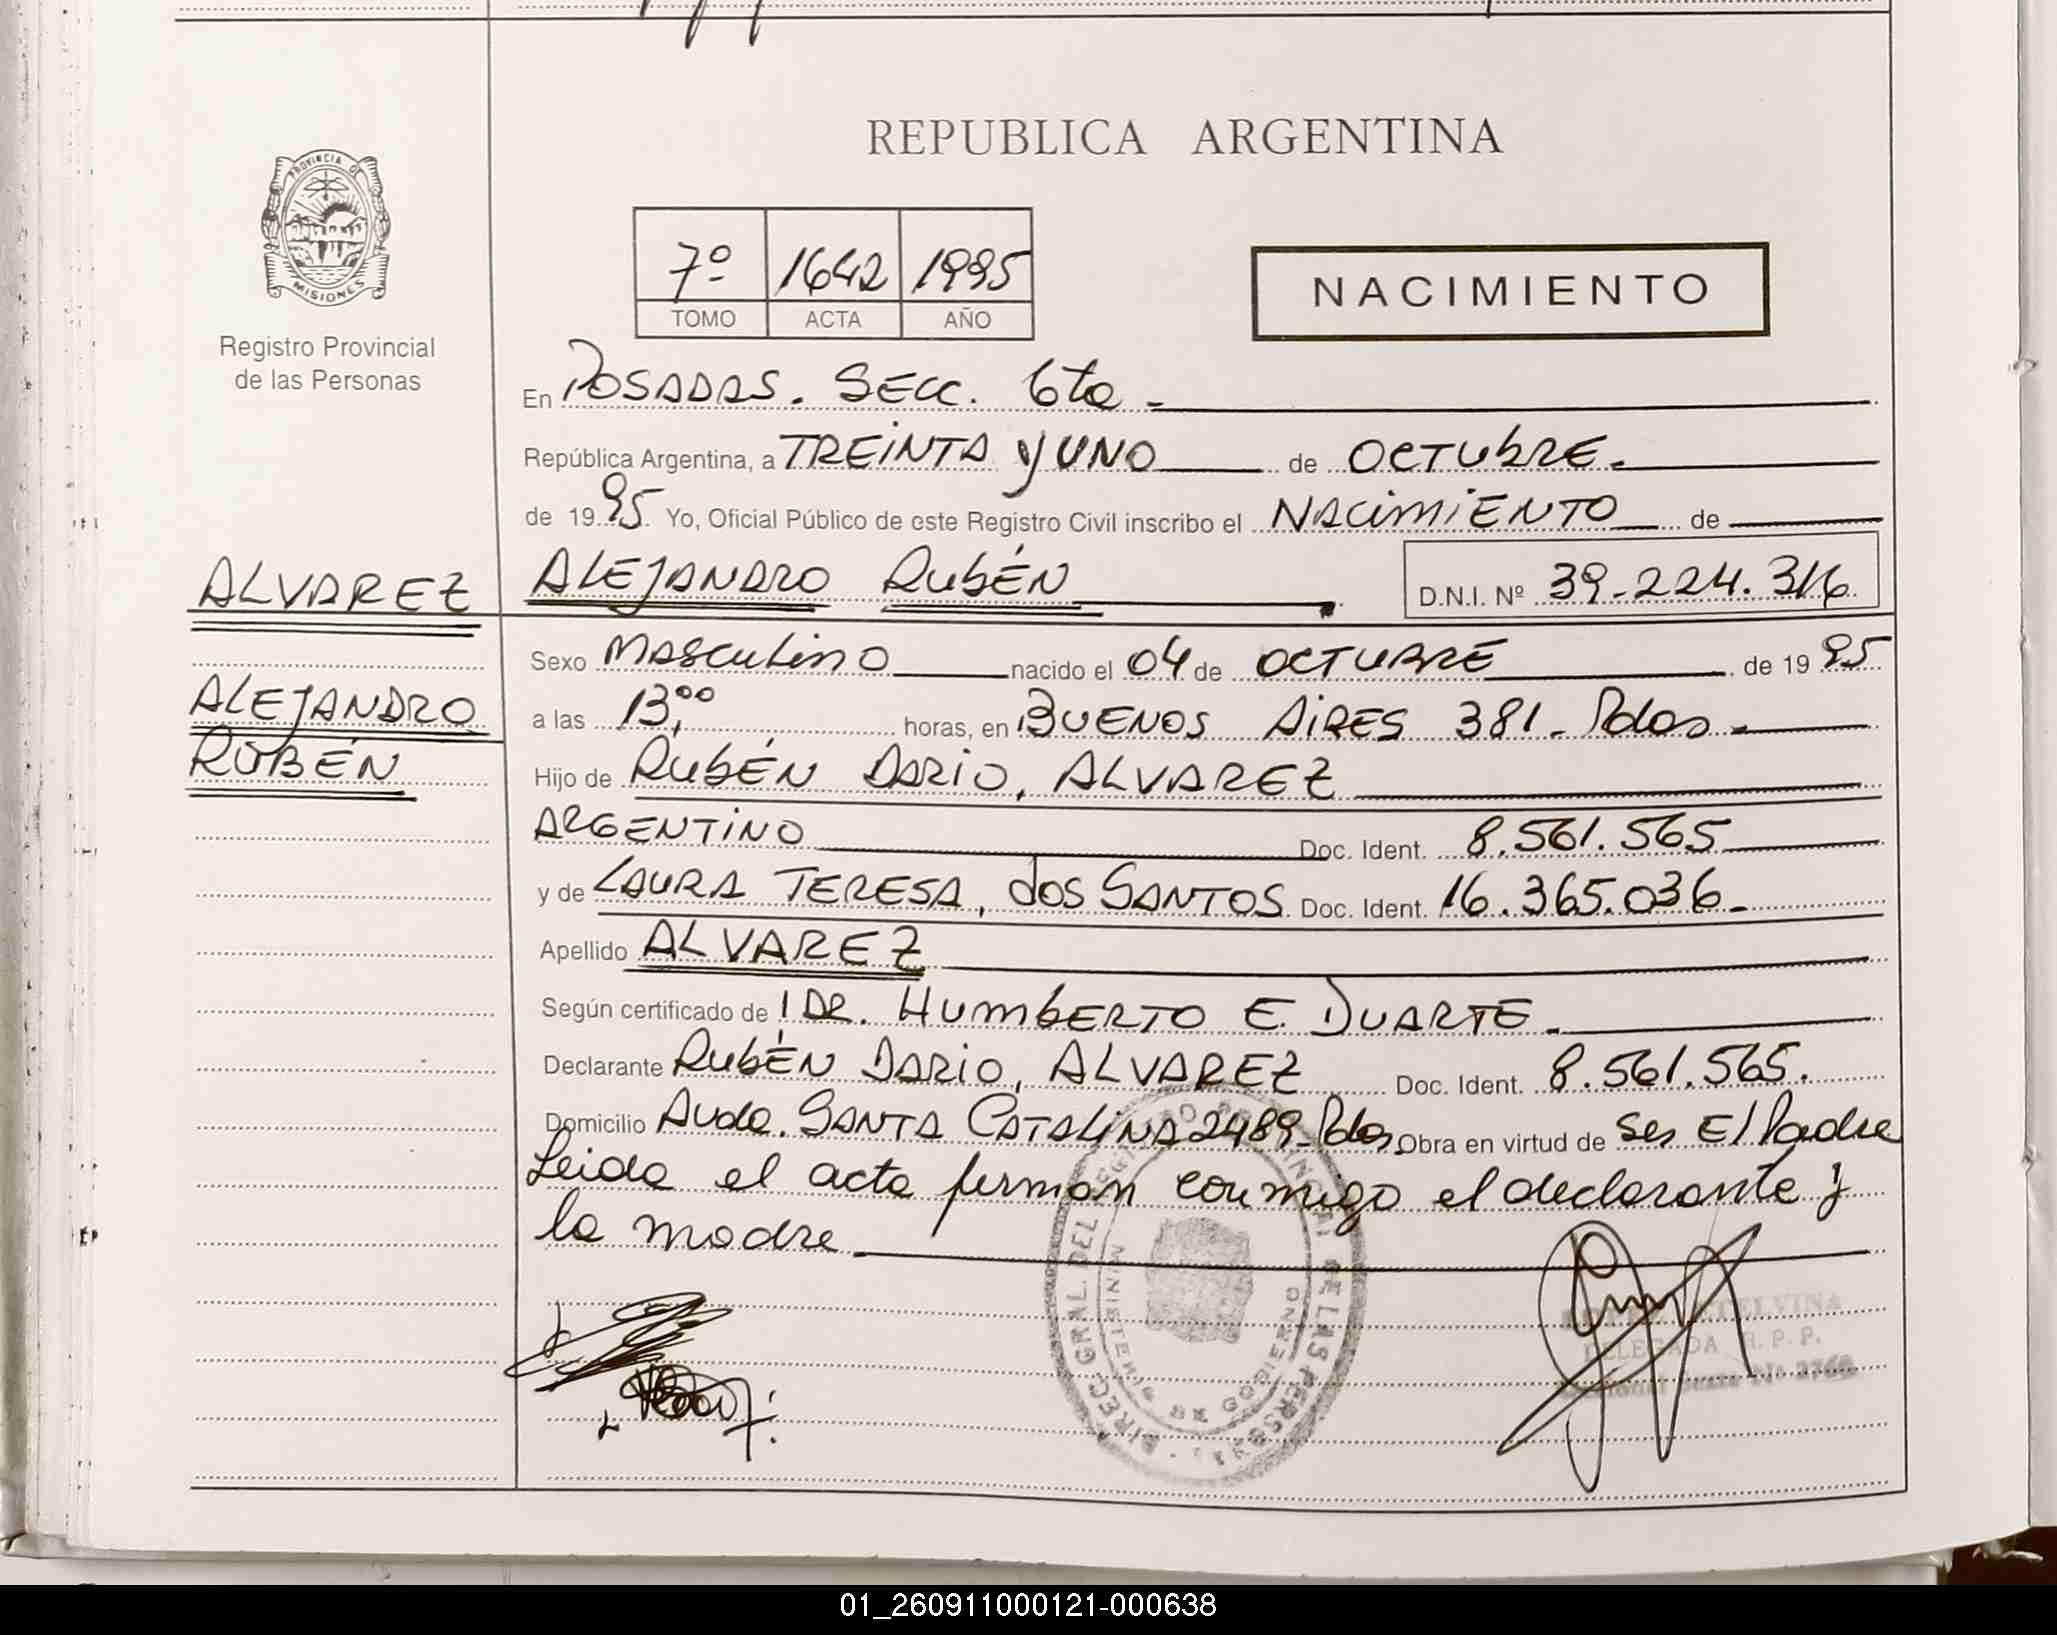 REPUBLICA ARGENTINA
PROVINCIA DE
MISIONES
Registro Provincial
de las Personas
7º 1642 1995
TOMO ACTA AÑO
NACIMIENTO
En POSADAS. SECC. 6ta -
República Argentina, a TREINTA y UNO de OCTUBRE.
de 1995. Yo, Oficial Público de este Registro Civil inscribo el NACIMIENTO de
ALVAREZ
ALEJANDRO
RUBÉN
ALEJANDRO RUBÉN D.N.I. Nº 39.224.316
Sexo MASCULINO nacido el 04 de OCTUBRE de 1995
a las 13,00 horas, en BUENOS AIRES 381 - Pdas -
Hijo de RUBÉN DARIO, ALVAREZ
ARGENTINO Doc. Ident. 8.561.565
y de LAURA TERESA, dos SANTOS Doc. Ident. 16.365.036 -
Apellido ALVAREZ
Según certificado de DR. HUMBERTO E. DUARTE -
Declarante RUBÉN DARIO, ALVAREZ Doc. Ident. 8.561.565.
Domicilio Avda. SANTA CATALINA 2489 - Pdas Obra en virtud de ser El Padre
Leida el acta firman conmigo el declarante y
la madre
DIREC. GRAL. DEL REGISTRO PROVINCIAL DE LAS PERSONAS
MINISTERIO DE GOBIERNO
DELEGADA R.P.P.
01_260911000121-000638